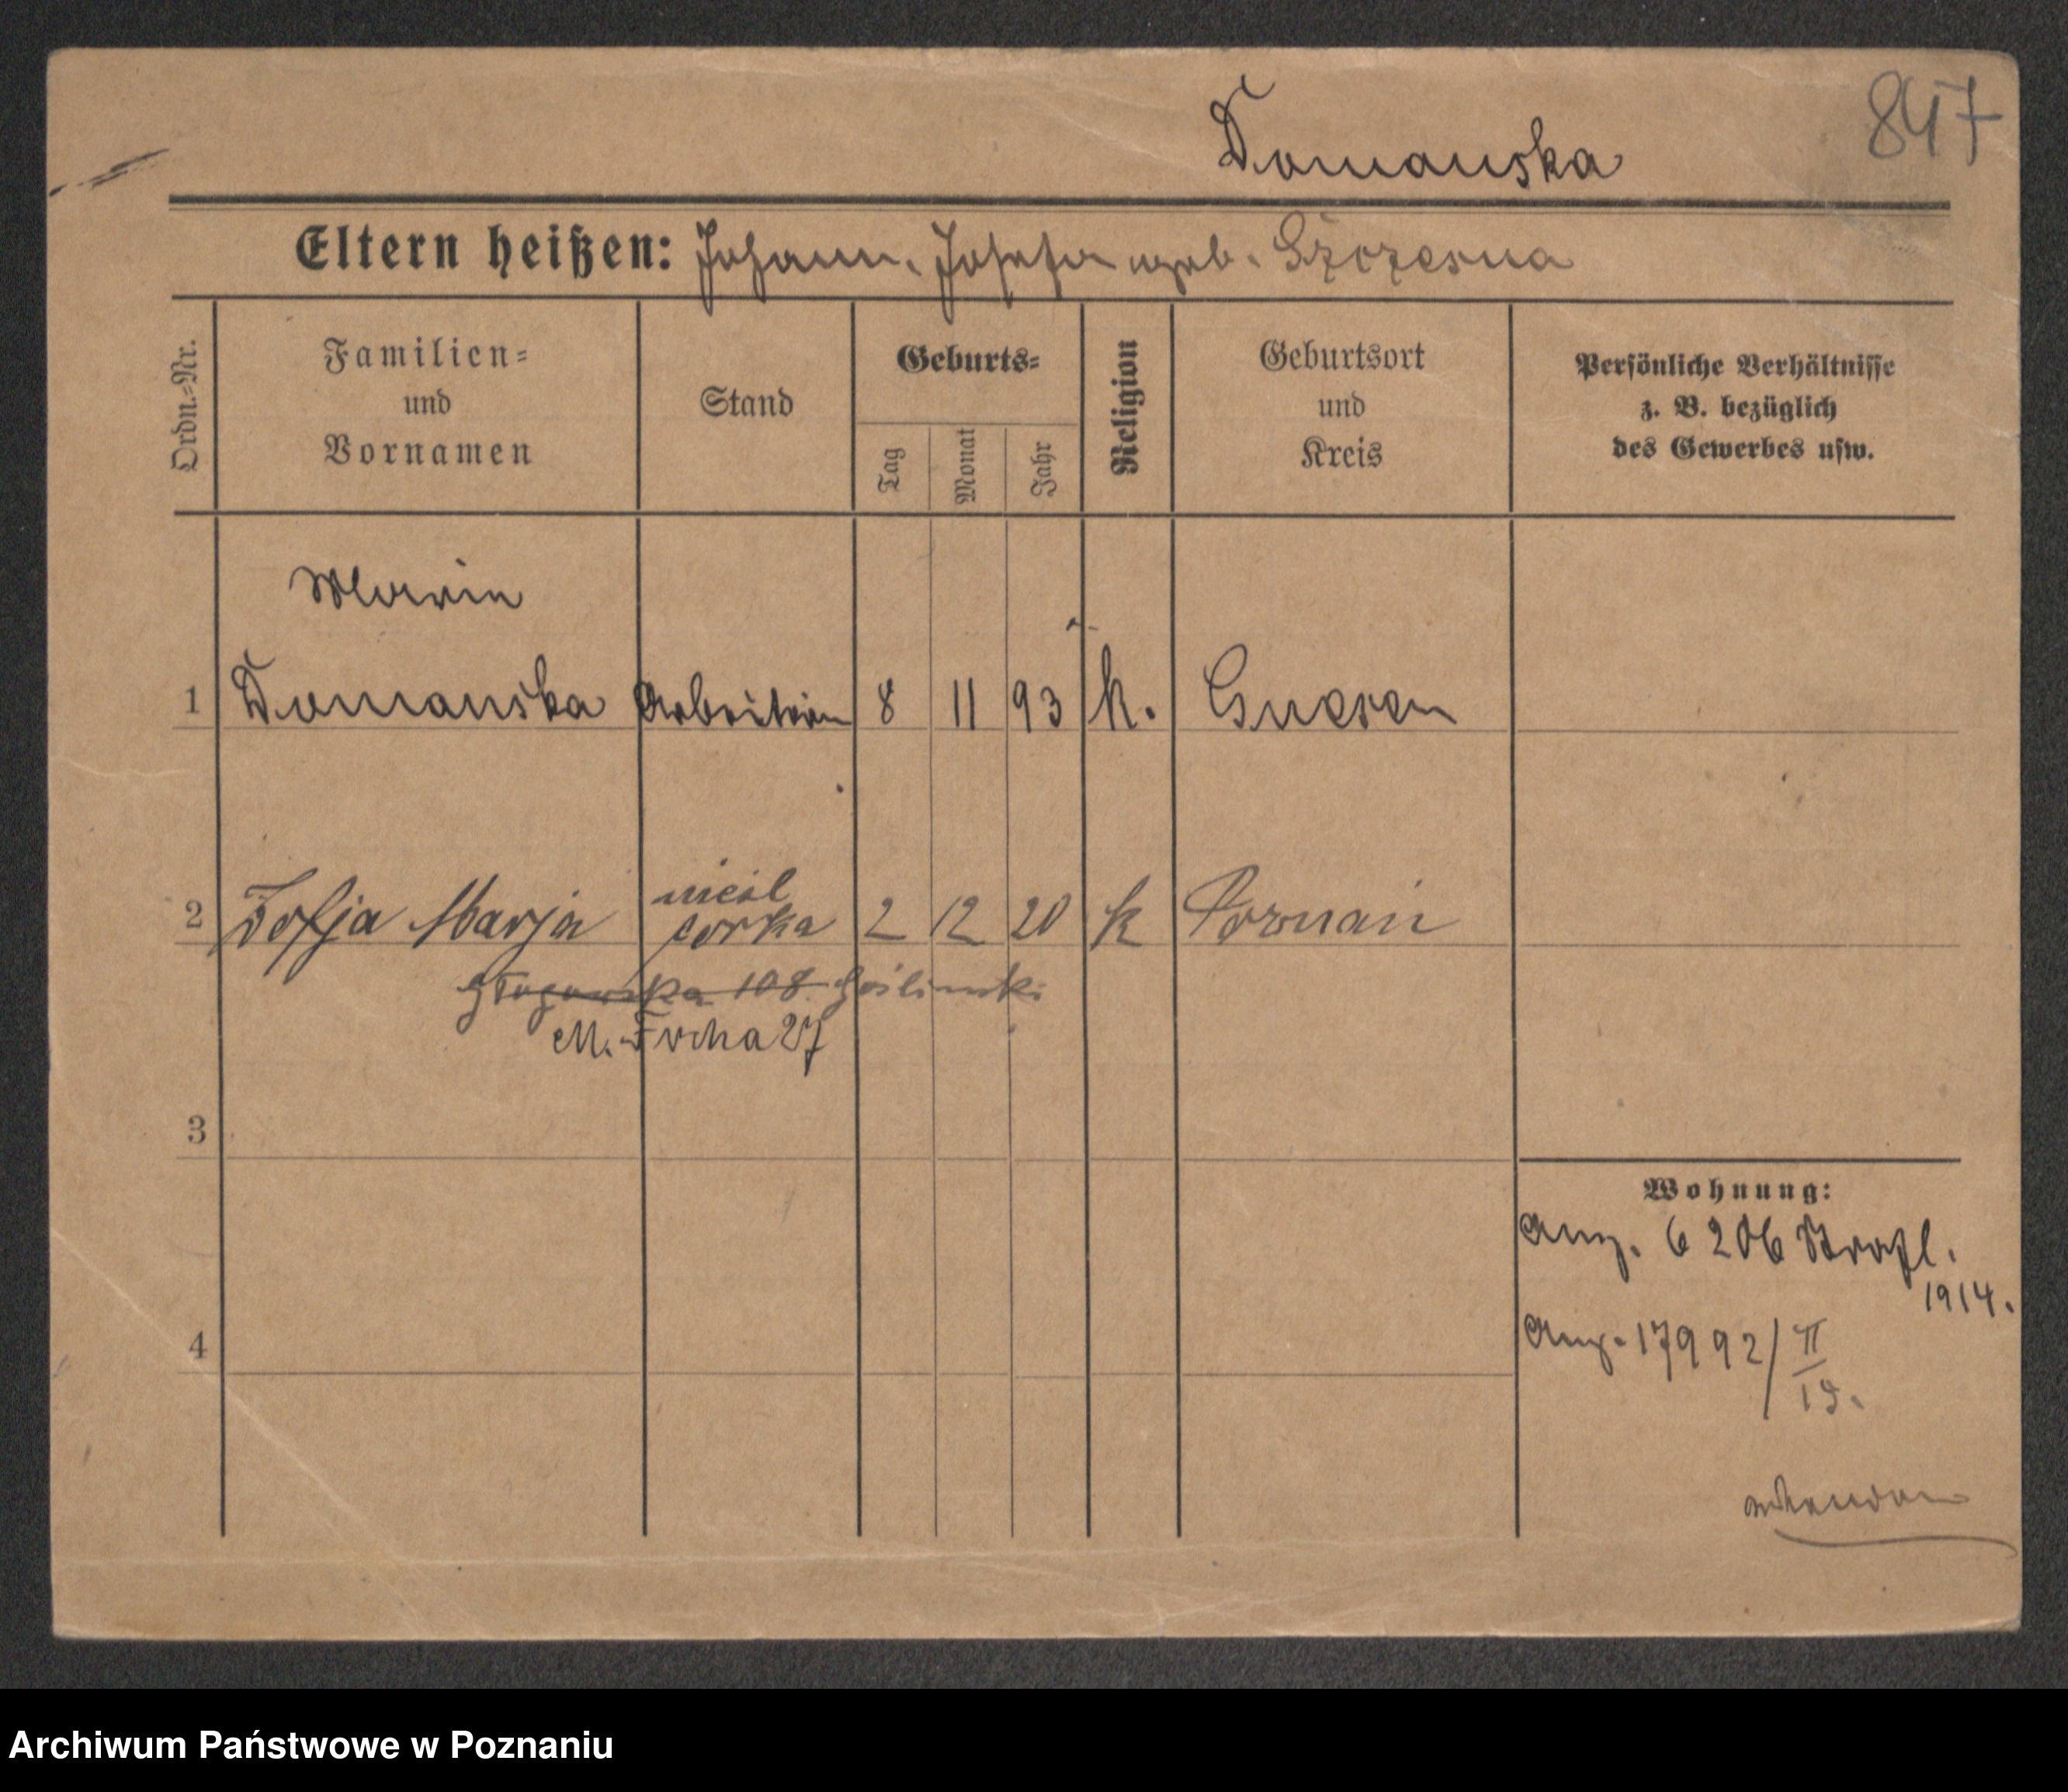 847
Domanska
Eltern heißen: Johann, Josefa geb. Szczesna
Ordn.-Nr.
Familien-
und
Vornamen
Stand
Geburts-
Tag
Monat
Jahr
Religion
Geburtsort
und
Kreis
Persönliche Verhältnisse
z. B. bezüglich
des Gewerbes usw.
Maria
1 Domanska Arbeiterin 8 11 93 k. Gnesen
nieśl
2 Zofja Marja córka 2 12 20 k Poznań
Głogowska 108. Goślinski
M. Focha 27
3
Wohnung:
Anz. 6206 Strafl.
1914.
4
Anz. 17992/II
19.
Archiwum Państwowe w Poznaniu